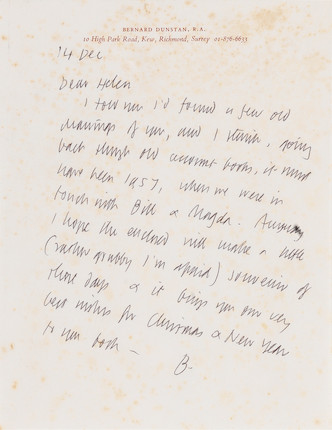 BERNARD DUNSTAN, R.A.
10 High Park Road, Kew, Richmond, Surrey 01-876-6633
14 Dec
Dear Helen
I told you I'd found a few old
drawings of you, and I think, going
back through old account books, it must
have been 1957, when we were in
touch with Bill & Magda. Anyway
I hope the enclosed will make a little
(rather grubby I'm afraid) souvenir of
those days & it brings you our very
best wishes for Christmas & New Year
to you both —
B.